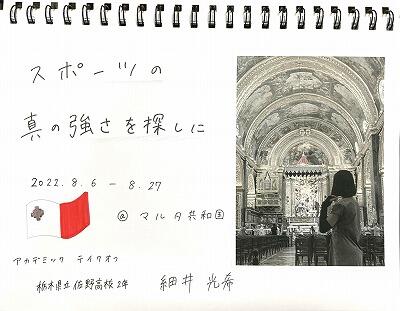 スポーツの
真の強さを探しに
2022.8.6 - 8.27
@マルタ共和国
アカデミック テイクオフ
栃木県立佐野高校2年 細井 光希